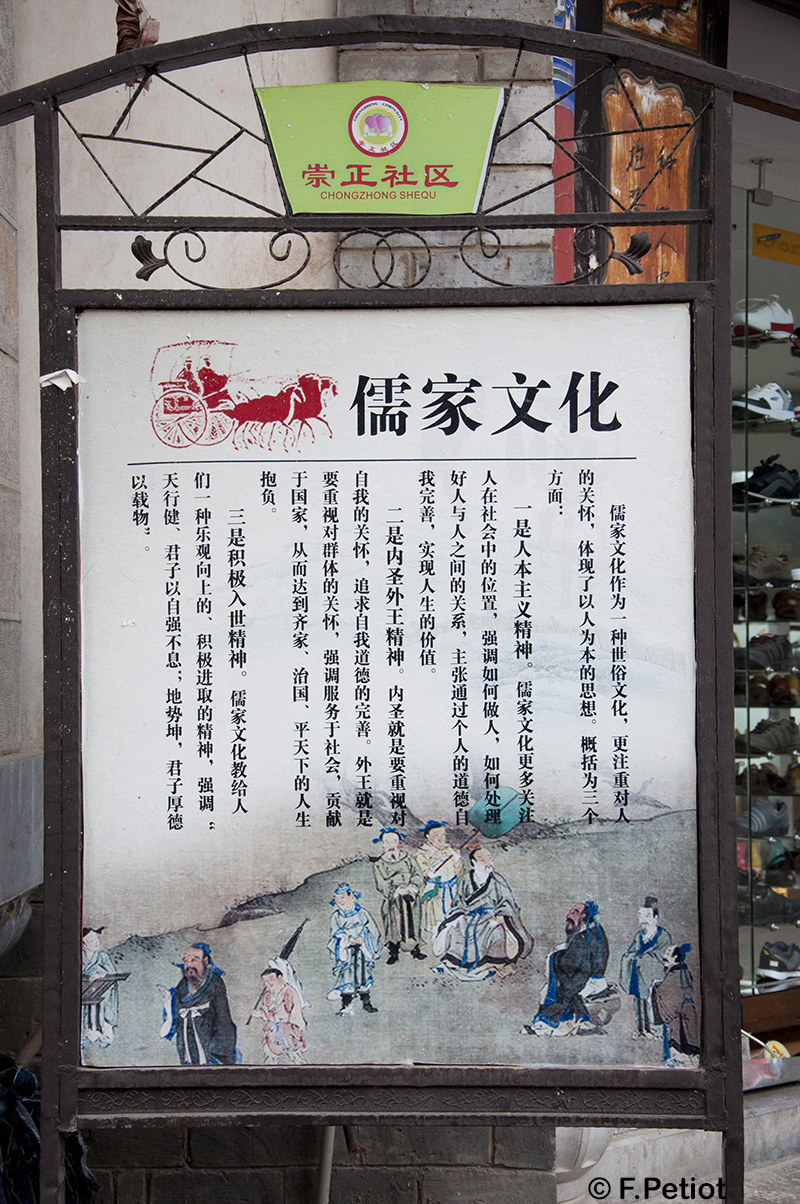 CHONGZHENG COMMUNITY
崇正社区
崇正社区
CHONGZHONG SHEQU
儒家文化
儒家文化作为一种世俗文化，更注重对人
的关怀，体现了以人为本的思想。概括为三个
方面：
一是人本主义精神。儒家文化更多关注
人在社会中的位置，强调如何做人，如何处理
好人与人之间的关系，主张通过个人的道德自
我完善，实现人生的价值。
二是内圣外王精神。内圣就是要重视对
自我的关怀，追求自我道德的完善。外王就是
要重视对群体的关怀，强调服务于社会，贡献
于国家，从而达到齐家、治国、平天下的人生
抱负。
三是积极入世精神。儒家文化教给人
们一种乐观向上的、积极进取的精神，强调“
天行健、君子以自强不息；地势坤，君子厚德
以载物”。
© F.Petiot